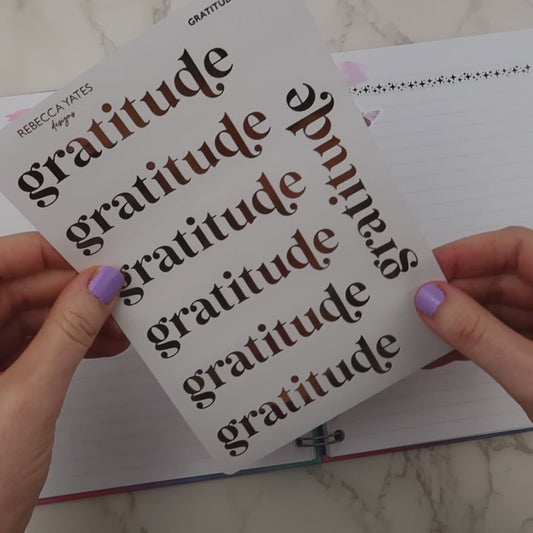 GRATITUDE
REBECCA YATES
designs
gratitude
gratitude
gratitude
gratitude
gratitude
gratitude
gratitude